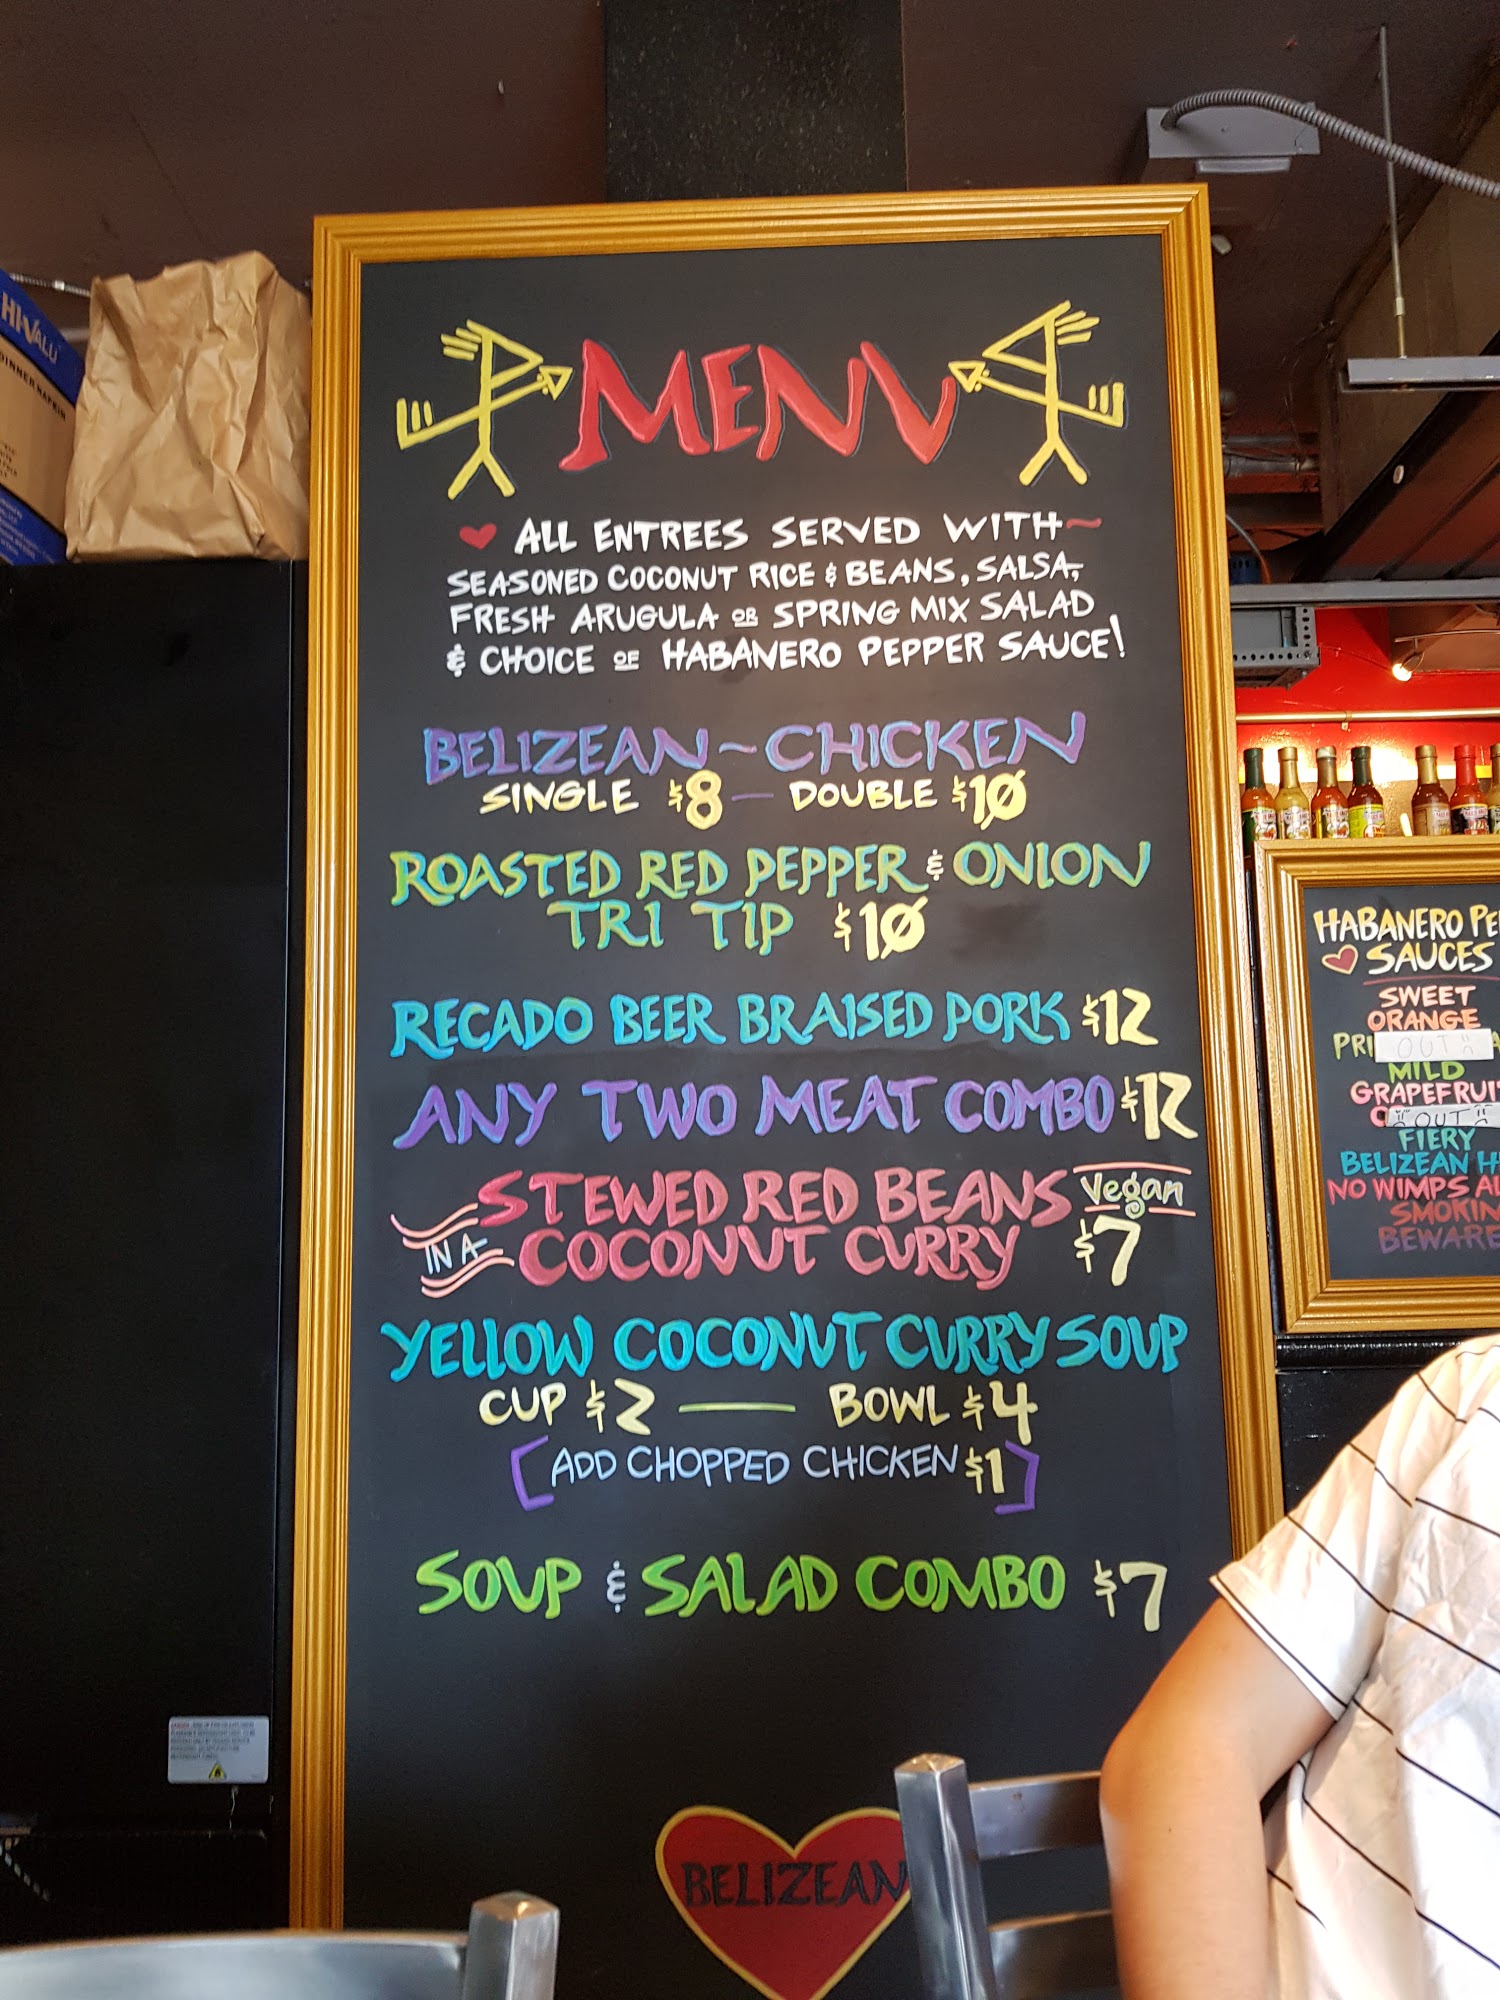 MENU
ALL ENTREES SERVED WITH~
SEASONED COCONUT RICE & BEANS, SALSA,
FRESH ARUGULA OR SPRING MIX SALAD
& CHOICE OF HABANERO PEPPER SAUCE!
BELIZEAN~CHICKEN
SINGLE $8 — DOUBLE $10
ROASTED RED PEPPER & ONION
TRI TIP $10
RECADO BEER BRAISED PORK $12
ANY TWO MEAT COMBO $12
STEWED RED BEANS Vegan
IN A COCONUT CURRY $7
YELLOW COCONUT CURRY SOUP
CUP $2 — BOWL $4
[ADD CHOPPED CHICKEN $1]
SOUP & SALAD COMBO $7
BELIZEAN
HABANERO PE
SAUCES
SWEET
ORANGE
PRI OUT
MILD
GRAPEFRUI
OUT
FIERY
BELIZEAN H
NO WIMPS A
SMOKIN
BEWARE
HI-VALU
DINNER NAPKIN